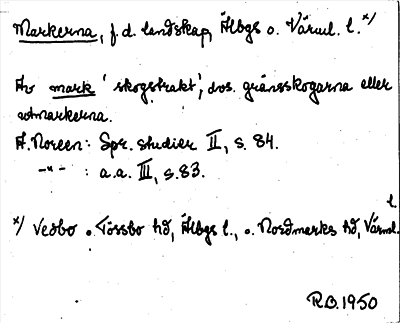 Markerna, f.d. landskap, Älbgs o. Värml. l. x)
Av mark 'skogstrakt', dvs. gränsskogarna eller
utmarkerna.
A. Noreen: Spr. studier II, s. 84.
-"- : a.a. III, s. 83.
x) Vedbo o. Tössbo hd, Älbgs l., o. Nordmarks hd, Värml. l.
R.B. 1950